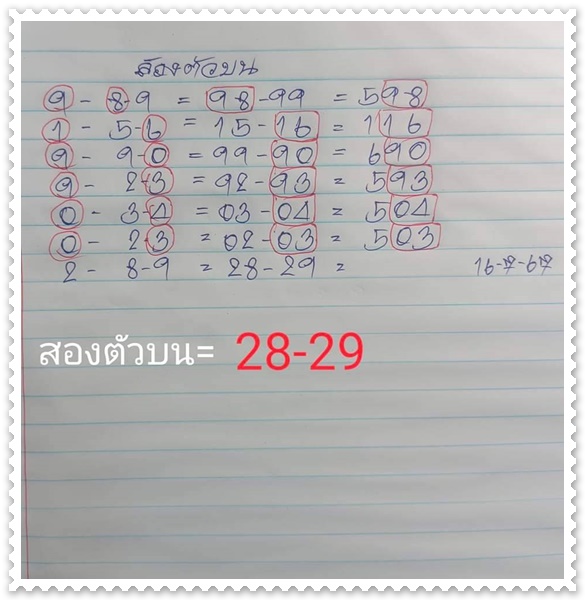 สองตัวบน
9 - 8-9 = 98-99 = 598
1 - 5-6 = 15-16 = 116
9 - 9-0 = 99-90 = 690
9 - 2-3 = 92-93 = 593
0 - 3-4 = 03-04 = 504
0 - 2-3 = 02-03 = 503
2 - 8-9 = 28-29 = 16-7-67
สองตัวบน= 28-29